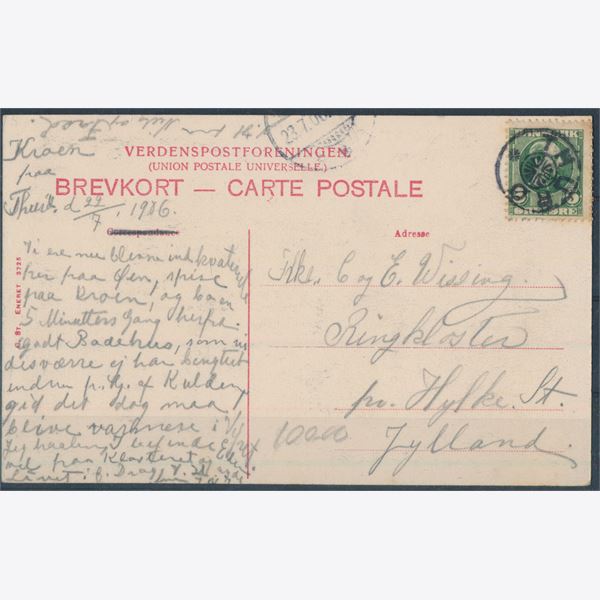 Kroen
paa
d 22/7, 1906.
23.7.06
VERDENSPOSTFORENINGEN
(UNION POSTALE UNIVERSELLE.)
BREVKORT — CARTE POSTALE
Correspondance
Adresse
St. ENERET 3725
Vi ere nu blevne indkvarterede
her paa Øen, spise
paa Kroen, og bo en
5 Minutters Gang herfra.
godt Badehus, som vi
desværre ej har benyttet
endnu p. Gr. af Kulden,
gid det dog maa
blive varmere i
Jeg haaber I befinde Eder
vel paa Klosteret og
Frkr. C og E. Wissing.
Ringkloster
pr. Hylke. St.
Jylland.
10000